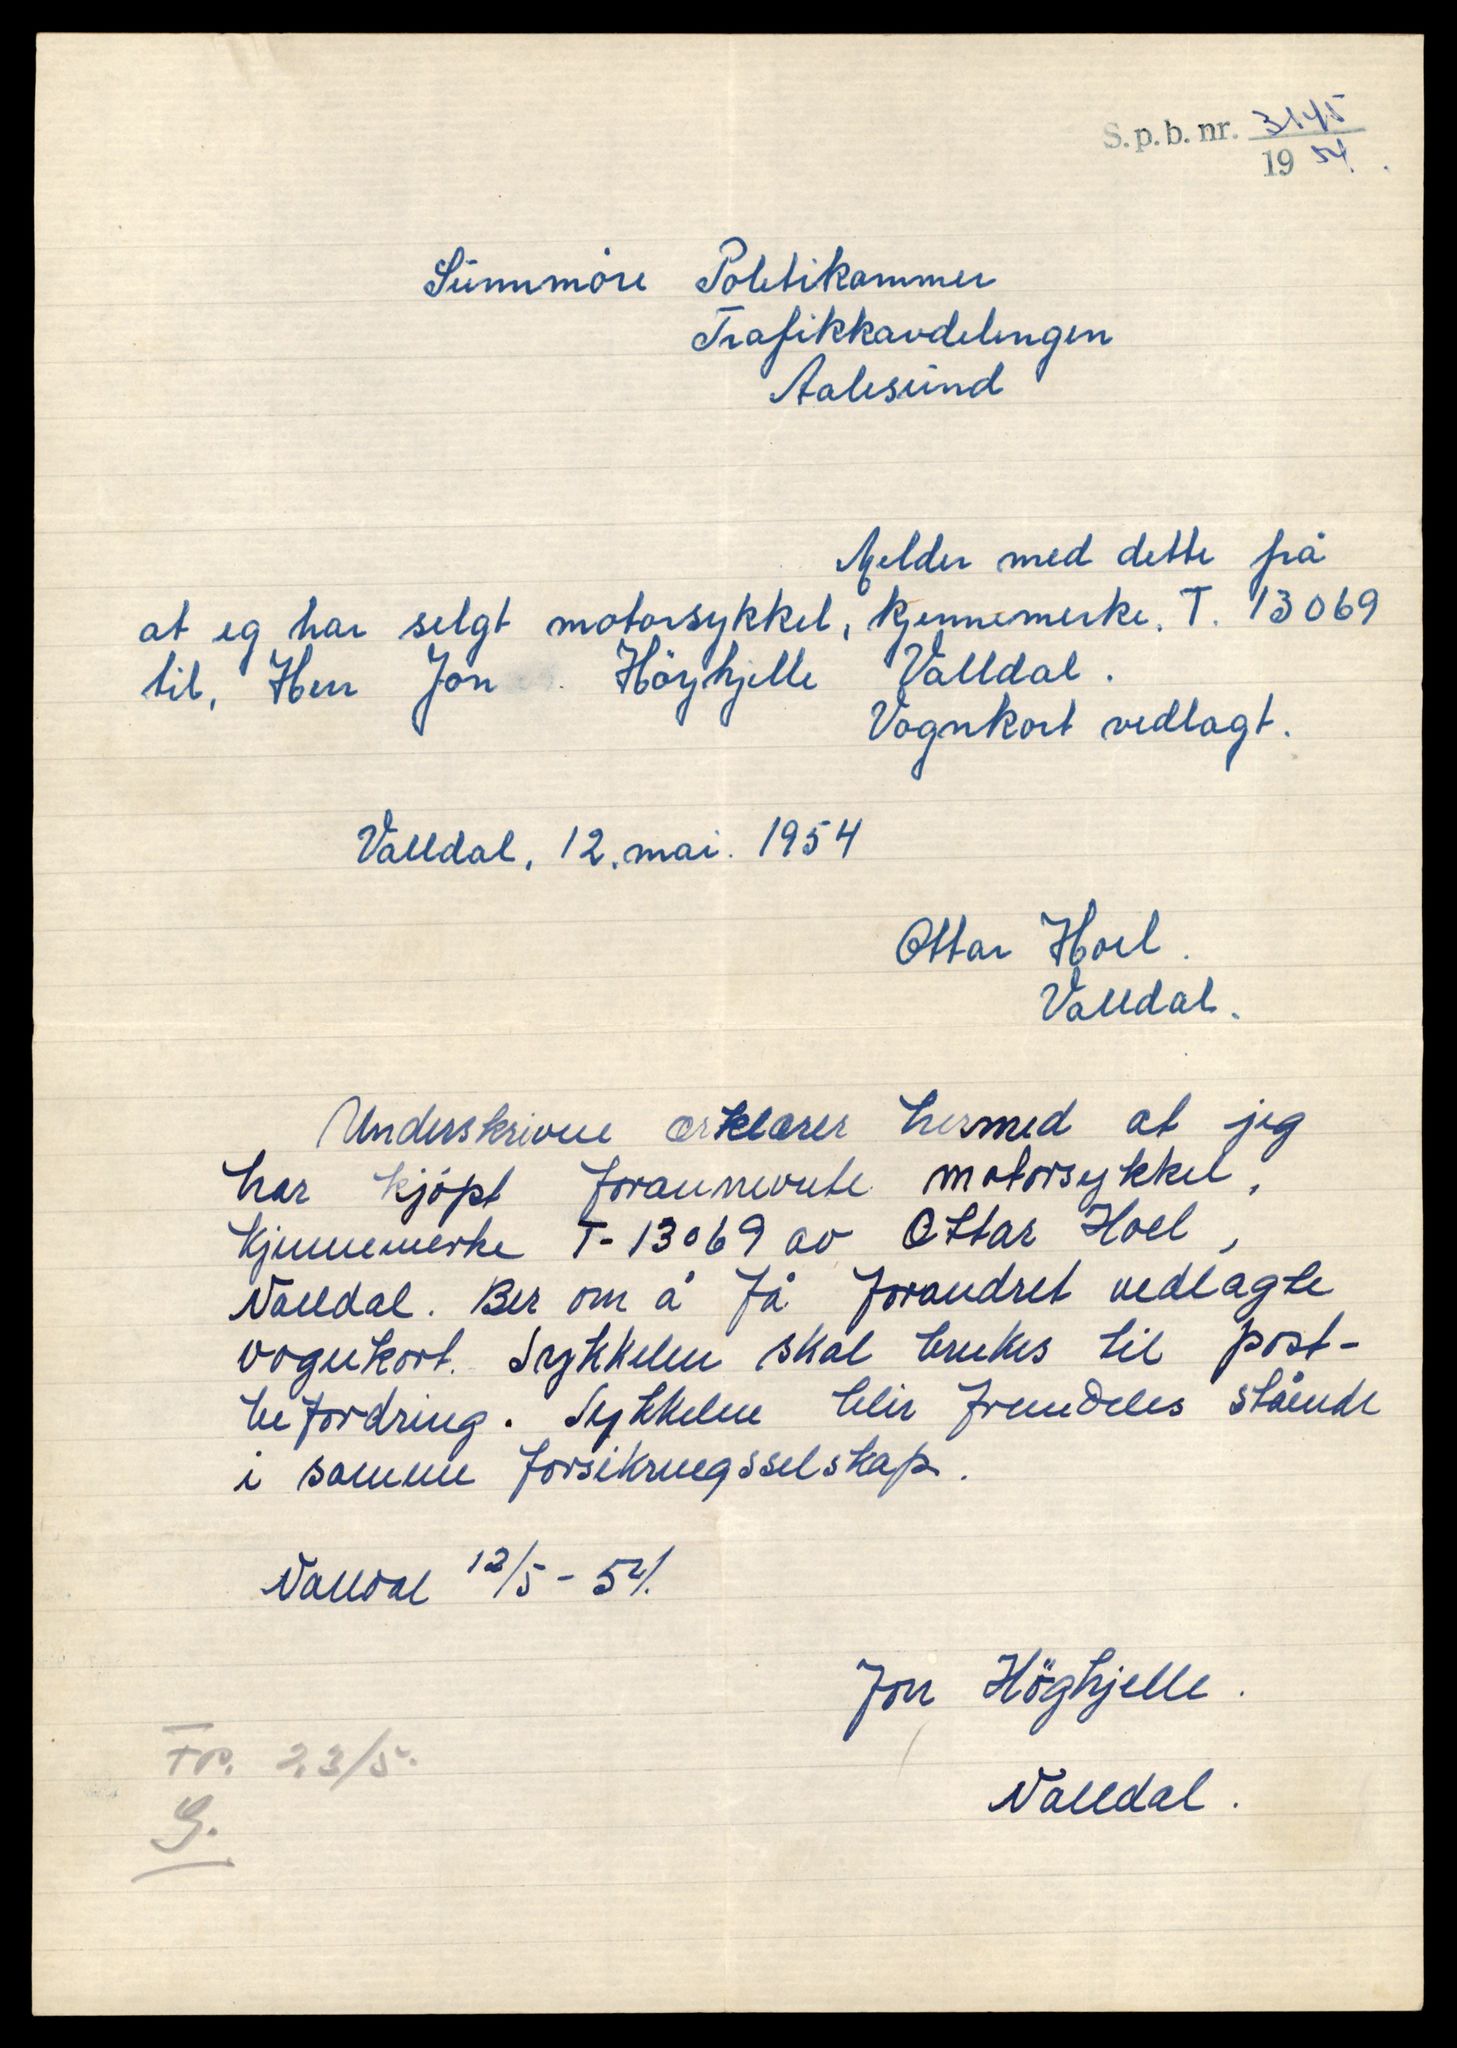 S.p.b. nr. 3145
19 54.
Sunnmöre Politikammer
Trafikkavdelingen
Aalesund
Melder med dette frå
at eg har selgt motorsykkel, kjennemerke. T. 13069
til, Herr Jon Höghjelle Valldal.
Vognkort vedlagt.
Valldal, 12. mai. 1954
Ottar Hoel.
Valldal.
Underskrivne erklærer hermed at jeg
har kjöpt forannevnte motorsykkel,
Kjennemerke T-13069 av Ottar Hoel,
Valldal. Ber om å få forandret vedlagte
vognkort. Sykkelen skal brukes til post-
befordring. Sykkelen blir fremdeles stående
i samme forsikringsselskap.
Valldal 12/5-54.
Jon Höghjelle.
Valldal.
23/5.
G.